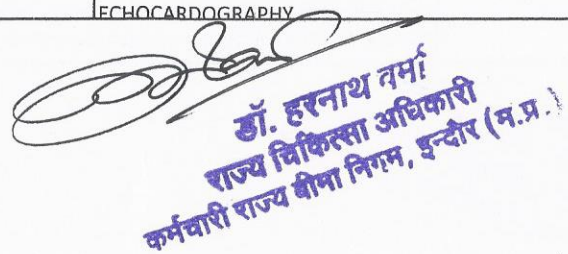 ECHOCARDOGRAPHY
डॉ. हरनाथ वर्मा
राज्य चिकित्सा अधिकारी
कर्मचारी राज्य बीमा निगम, इन्दौर (म.प्र.)